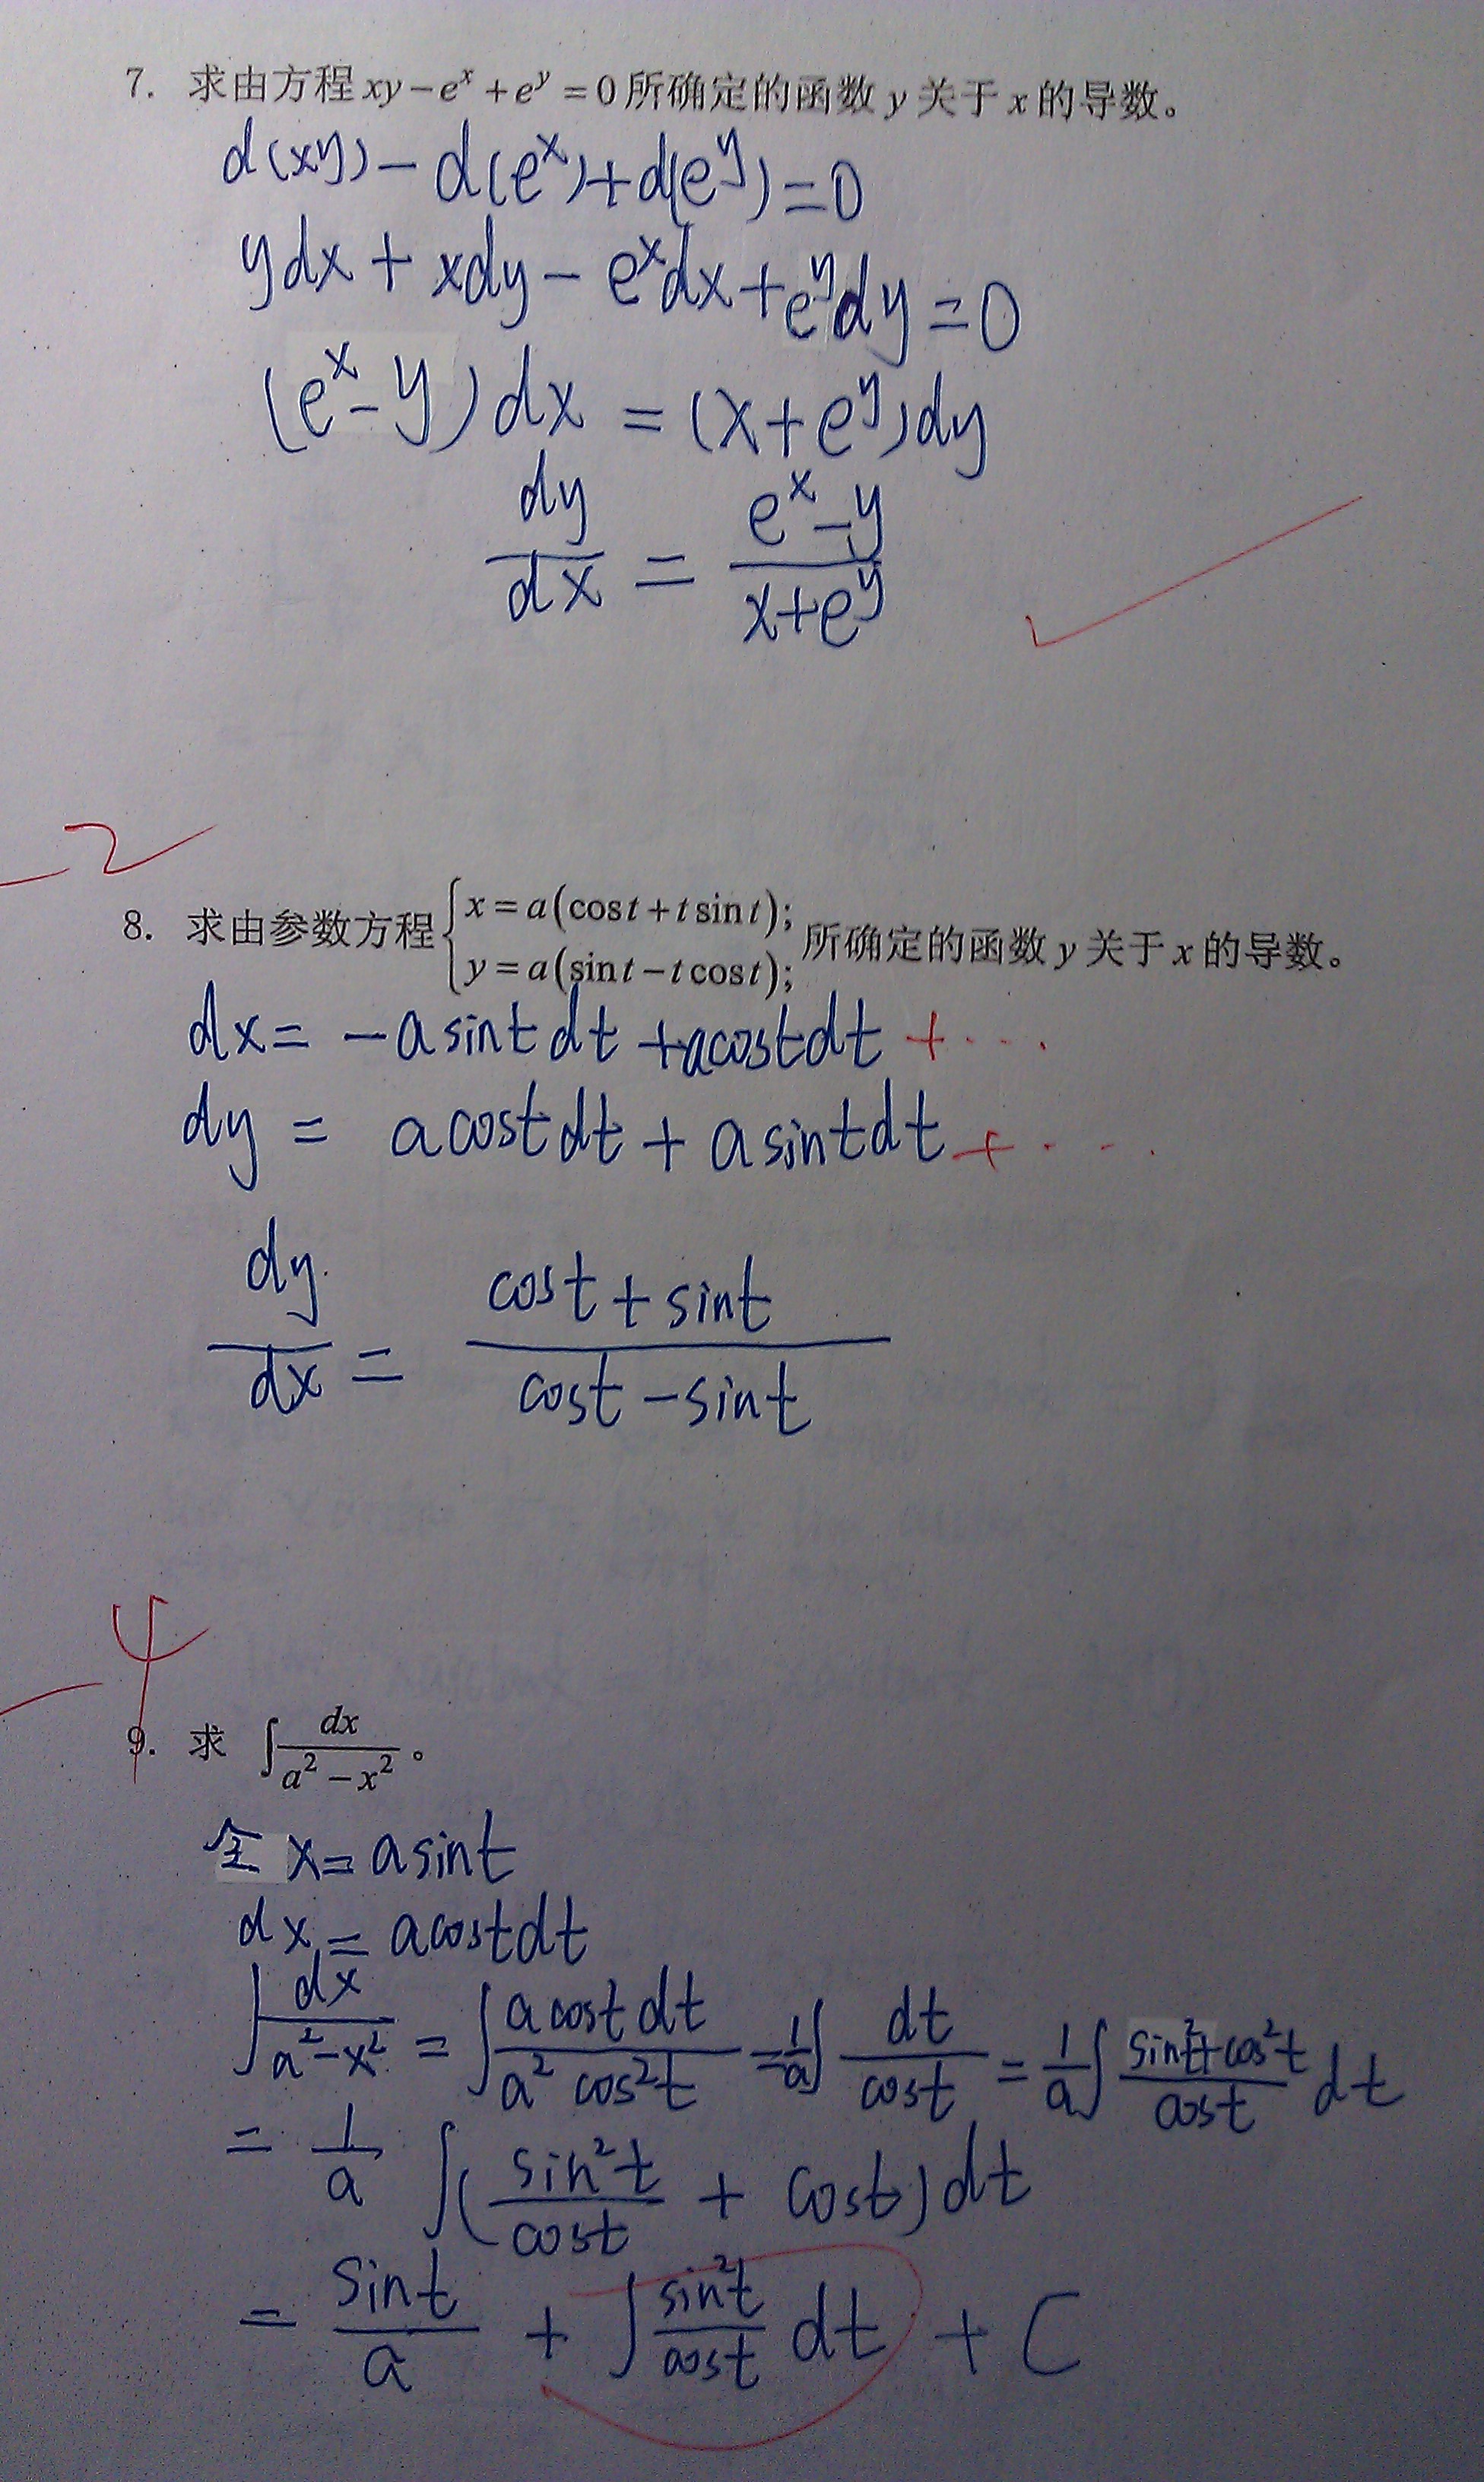 7. 求由方程 xy－eˣ＋eʸ＝0 所确定的函数 y 关于 x 的导数。
d(xy)－d(eˣ)+d(eʸ)=0
ydx + xdy－eˣdx+eʸdy=0
(eˣ－y)dx = (x+eʸ)dy
dy/dx = (eˣ－y)/(x+eʸ)
－2
8. 求由参数方程 {x=a(cost+tsint); y=a(sint－tcost); 所确定的函数 y 关于 x 的导数。
dx= －asintdt +acostdt + ···
dy = acostdt + asintdt + ···
dy/dx = (cost+sint)/(cost－sint)
－4
9. 求 ∫dx/(a²－x²)。
令 x=asint
dx=acostdt
∫dx/(a²－x²) = ∫acostdt/(a²cos²t) = 1/a ∫dt/cost = 1/a ∫(sin²t+cos²t)/cost dt
= 1/a ∫(sin²t/cost + cost)dt
= sint/a + ∫sin²t/cost dt + C